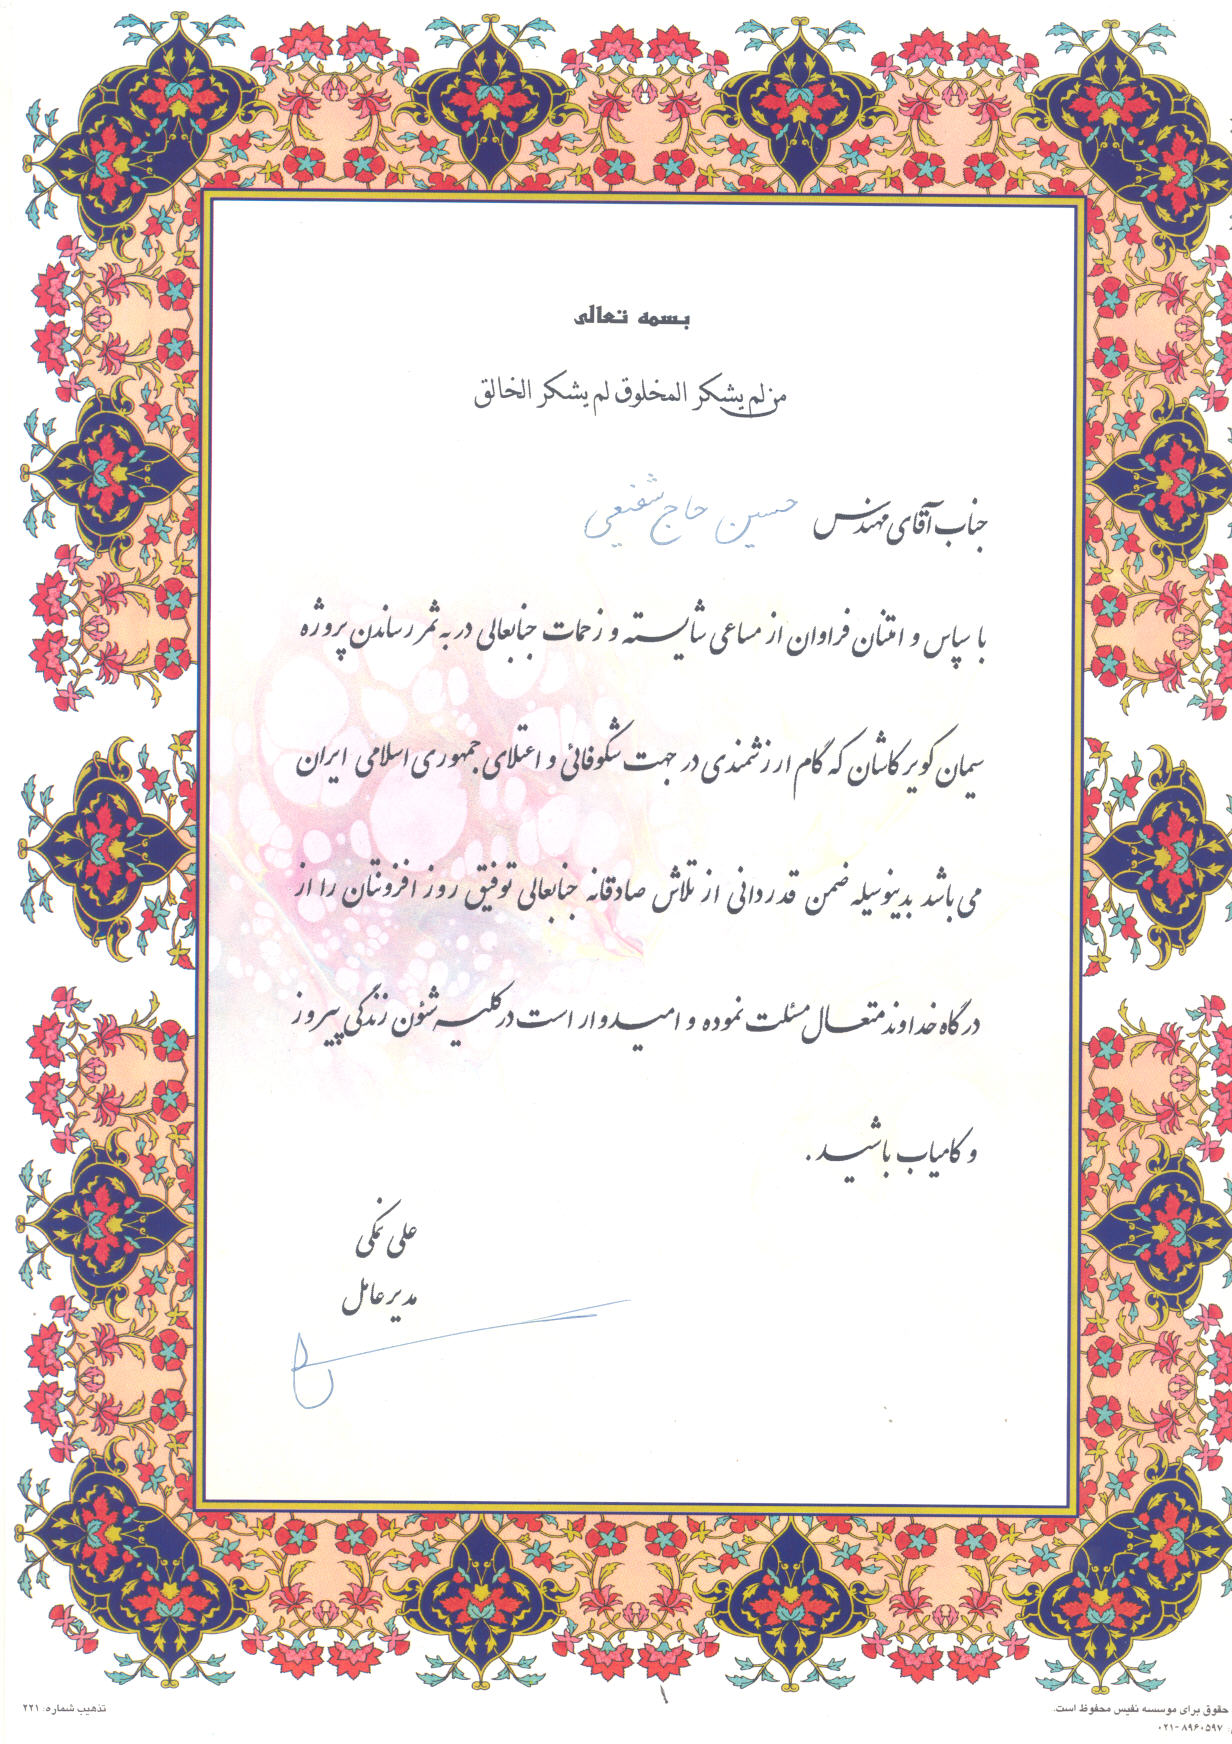 بسمه تعالی
من لم یشکر المخلوق لم یشکر الخالق
جناب آقای مهندس حسین حاج شفیعی
با سپاس و امتنان فراوان از مساعی شایسته و زحمات جنابعالی در به ثمر رساندن پروژه
سیمان کویر کاشان که گام ارزشمندی در جهت شکوفائی و اعتلای جمهوری اسلامی ایران
می باشد بدینوسیله ضمن قدردانی از تلاش صادقانه جنابعالی توفیق روز افزونتان را از
درگاه خداوند متعال مسئلت نموده و امیدوار است در کلیه شئون زندگی پیروز
و کامیاب باشید.
علی نمکی
مدیر عامل
تذهیب شماره: ۲۲۱
حقوق برای موسسه نفیس محفوظ است.
۰۲۱-۸۹۶۰۵۹۷